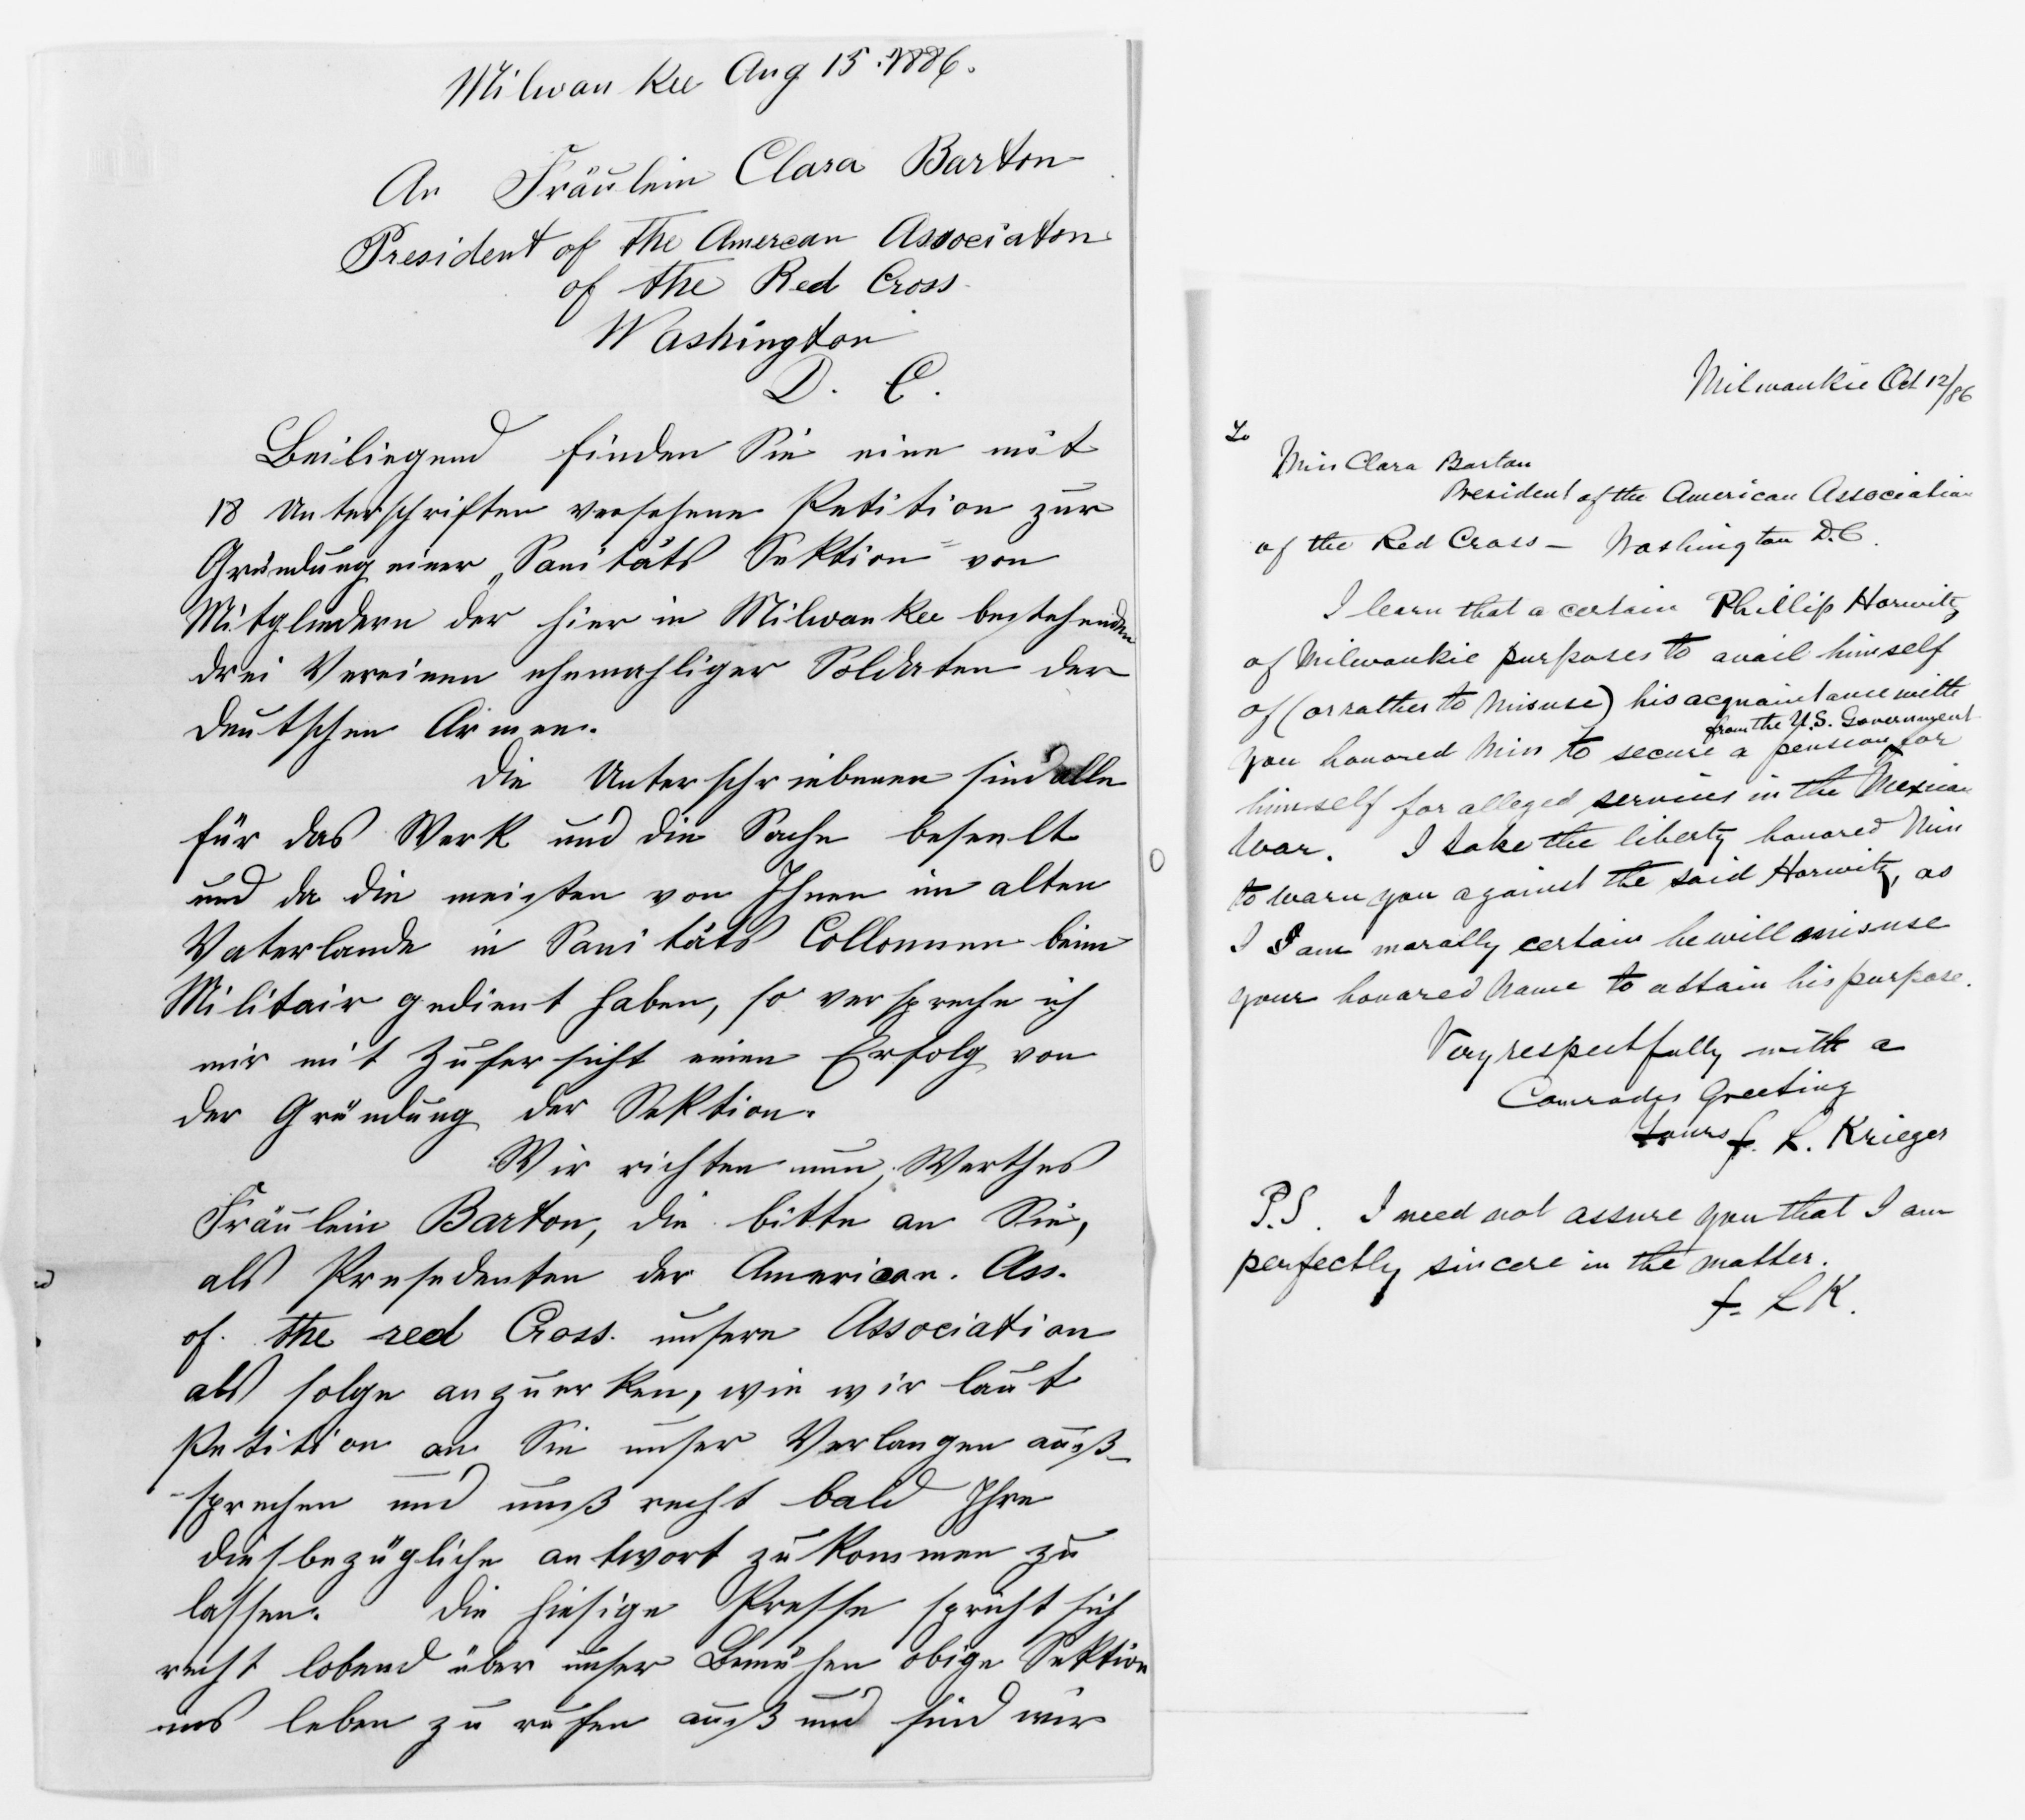 Milwau Kee Aug 15. 1886.
An Fräulein Clara Barton
President of the Amercan Associaton
of the Red Cross
Washington
D. C.
Beiliegend finden Sie eine mit
18 Unterschriften versehene Petition zur
Gründung einer „Sanitäts Sektion" von
Mitgliedern der hier in Milwau Kee bestehenden
drei Vereinen ehemahliger Soldaten der
deutschen Armee.
Die Unterschriebenen sind alle
für das Werk und die Sache beseelt
und da die meisten von Ihnen im alten
Vaterlande in Sanitäts Collonnen beim
Militair gedient haben, so verspreche ich
mir mit Zufersicht einen Erfolg von
der Gründung der Sektion.
Wir richten nun, Werthes
Fräulein Barton, die bitte an Sie,
als Presedenten der American. Ass.
of. the red Cross. unsere Association
als solge anzuerken, wie wir laut
Petition an Sie unser Verlangen auß-
-sprechen und unß recht bald Ihre
diesbezügliche antwort zu kommen zu
lassen. Die hiesige Presse spricht sich
recht lobend über unser Bemühen obige Sektion
ins leben zu rufen auß und sind wir
Milwaukie Oct 12/86
To
Miss Clara Barton
President of the American Association
of the Red Cross – Washington D.C.
I learn that a certain Phillip Horwitz
of Milwaukie purposes to avail himself
of (or rather to misuse) his acquaintance with
from the U.S. Government
you honored Miss to secure a pension for
himself for alleged services in the Mexican
War. I take the liberty honored Miss
to warn you against the said Horwitz, as
I I am morally certain he will misuse
your honored name to attain his purpose.
Very respectfully with a
Comrades Greeting
Yours f. L. Krieger
P.S. I need not assure you that I am
perfectly sincere in the matter.
f. L K.